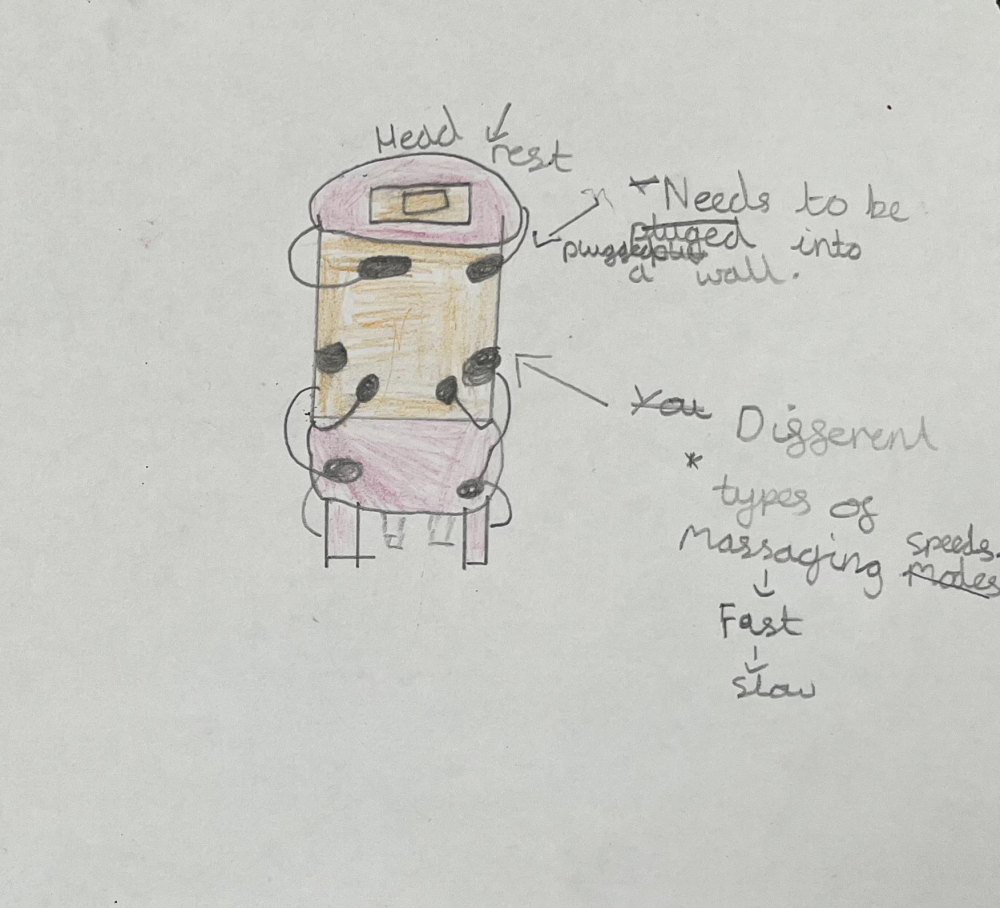 Head
rest
*Needs to be
pluged into
a wall.
You Different
*
types of
Massaging speeds.
Modes
↓
Fast
↓
Slow